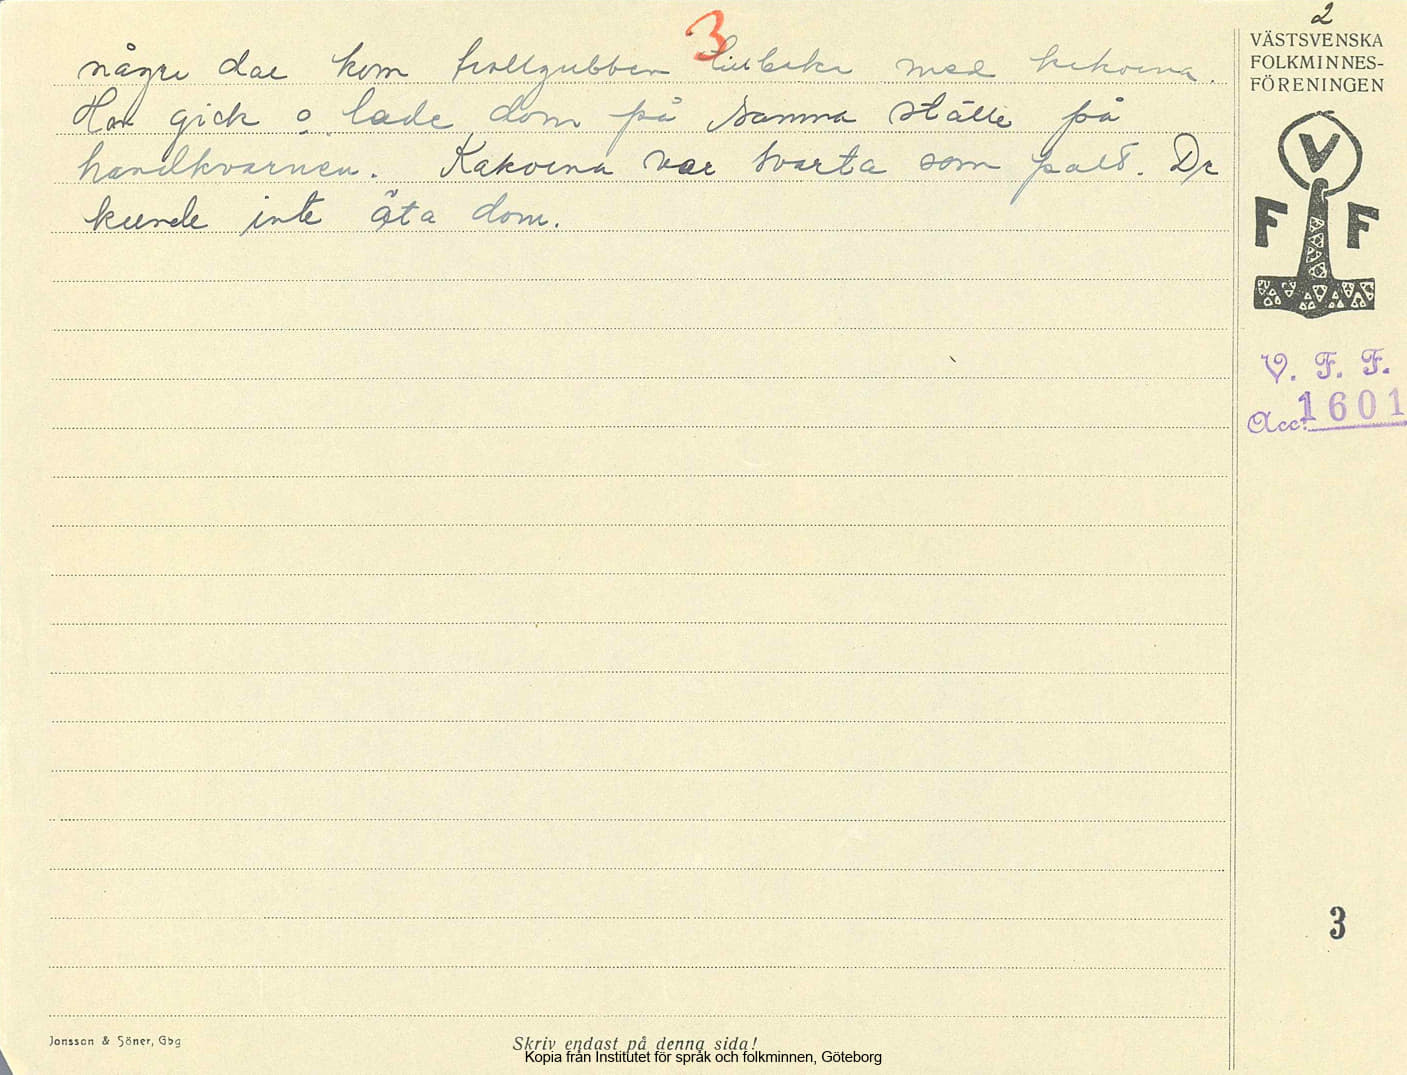 2
3
några dar kom trollgubben tillbaka med kakorna.
Han gick o lade dom på samma ställe på
handkvarnen. Kakorna var svarta som palt. De
kunde inte äta dom.
VÄSTSVENSKA
FOLKMINNES-
FÖRENINGEN
V
F F
V. F. F.
Acc. 1601
3
Jonsson & Söner, Gbg
Skriv endast på denna sida!
Kopia från Institutet för språk och folkminnen, Göteborg